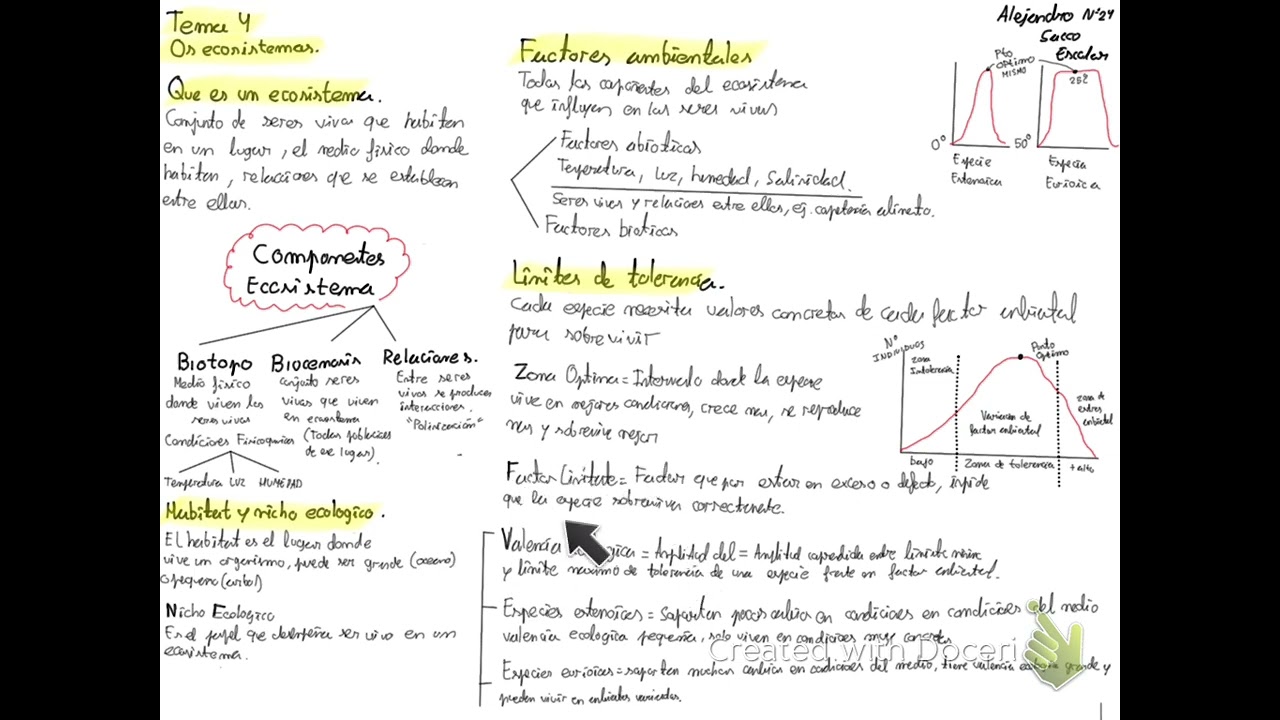 Tema 4
Os ecosistemas.
Que es un ecosistema.
Conjunto de seres vivos que habitan
en un lugar, el medio físico donde
habitan, relaciones que se establecen
entre ellos.
Componentes
Ecosistema
Biotopo
Medio físico
donde viven los
seres vivos
Condiciones Fisicoquimicas
Temperatura LUZ HUMEDAD
Biocenosis
Conjunto seres
vivos que viven
en ecosistema
(Todas poblaciones
de ese lugar)
Relaciones.
Entre seres
vivos se producen
interacciones.
"Polinización"
Habitat y nicho ecologico.
El habitat es el lugar donde
vive un organismo, puede ser grande (oceano)
o pequeño (arbol)
Nicho Ecologico
Es el papel que desempeña ser vivo en un
ecosistema.
Factores ambientales
Todos los componentes del ecosistema
que influyen en los seres vivos
Factores abioticos
Temperatura, Luz, humedad, Salinidad.
Seres vivos y relaciones entre ellos, ej. alimento.
Factores bioticos
Alejandro Nº24
Sacco
Escolar
Pto
OPTIMO
MISMO
25º
0º
50º
Especie
Estenoica
Especie
Eurioica
Límites de tolerancia.
Cada especie necesita valores concretos de cada factor ambiental
para sobrevivir
Zona Optima = Intervalo donde la especie
vive en mejores condiciones, crece mas, se reproduce
mas y sobrevive mejor
Nº
INDIVIDUOS
zona
Intolerancia
Punto
Optimo
Variacion de
factor ambiental
zona de
estres
ambiental
bajo
Zona de tolerancia
+ alto
Factor Limitante = Factor que por estar en exceso o defecto, impide
que la especie sobreviva correctamente.
Valencia = Amplitud del = Amplitud entre limite minimo
y limite maximo de tolerancia de una especie frente en factor ambiental.
Especies estenoicas = Soportan pocos cambios en condiciones en condiciones del medio
valencia ecologica pequeña, solo viven en condiciones muy concretas
Especies eurioicas = soportan muchos cambios en condiciones del medio, tiene valencia grande y
pueden vivir en ambientes variados.
Created with Doceri